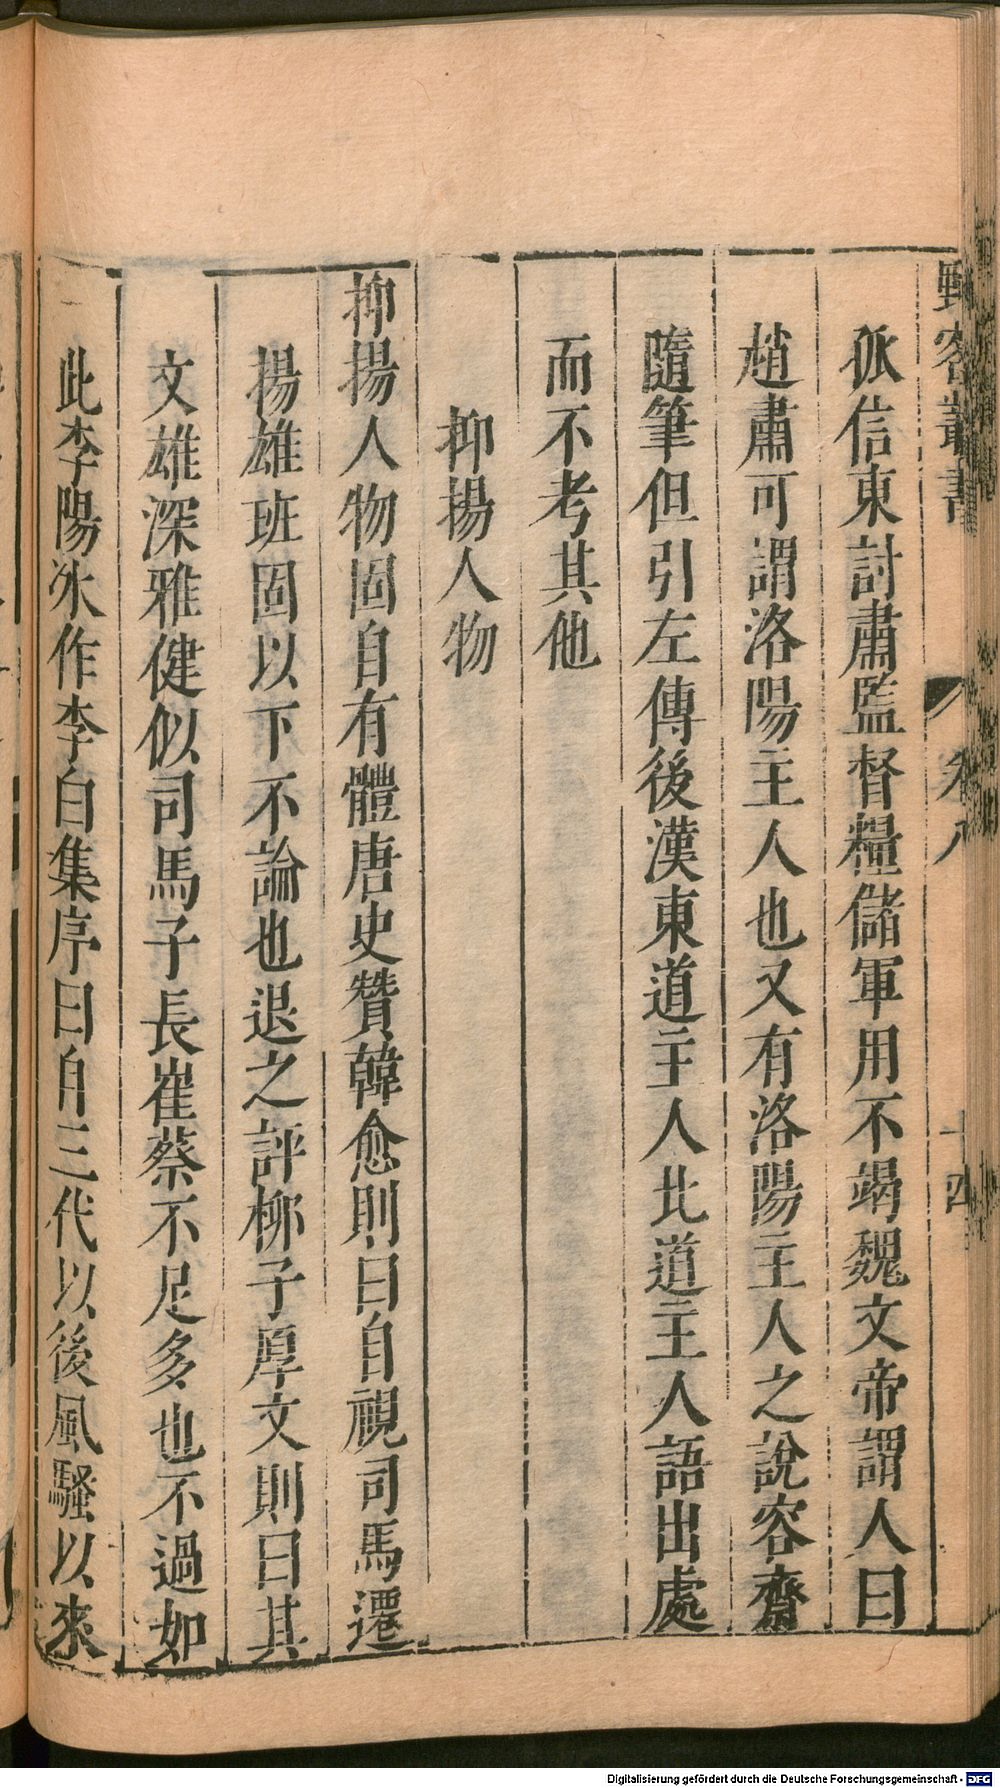 野客叢書
卷八
十四
狐信東討肅監督糧儲軍用不竭魏文帝謂人曰
趙肅可謂洛陽主人也又有洛陽主人之說容齋
隨筆但引左傳後漢東道主人北道主人語出處
而不考其他
抑揚人物
抑揚人物固自有體唐史贊韓愈則曰自視司馬遷
揚雄班固以下不論也退之評柳子厚文則曰其
文雄深雅健似司馬子長崔蔡不足多也不過如
此李陽冰作李白集序曰自三代以後風騷以來
Digitalisierung gefördert durch die Deutsche Forschungsgemeinschaft - DFG